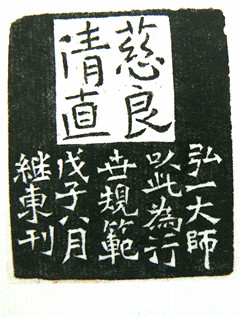 慈良
清直
弘一大師
以此為行
世規範
戊子八月
継東刊